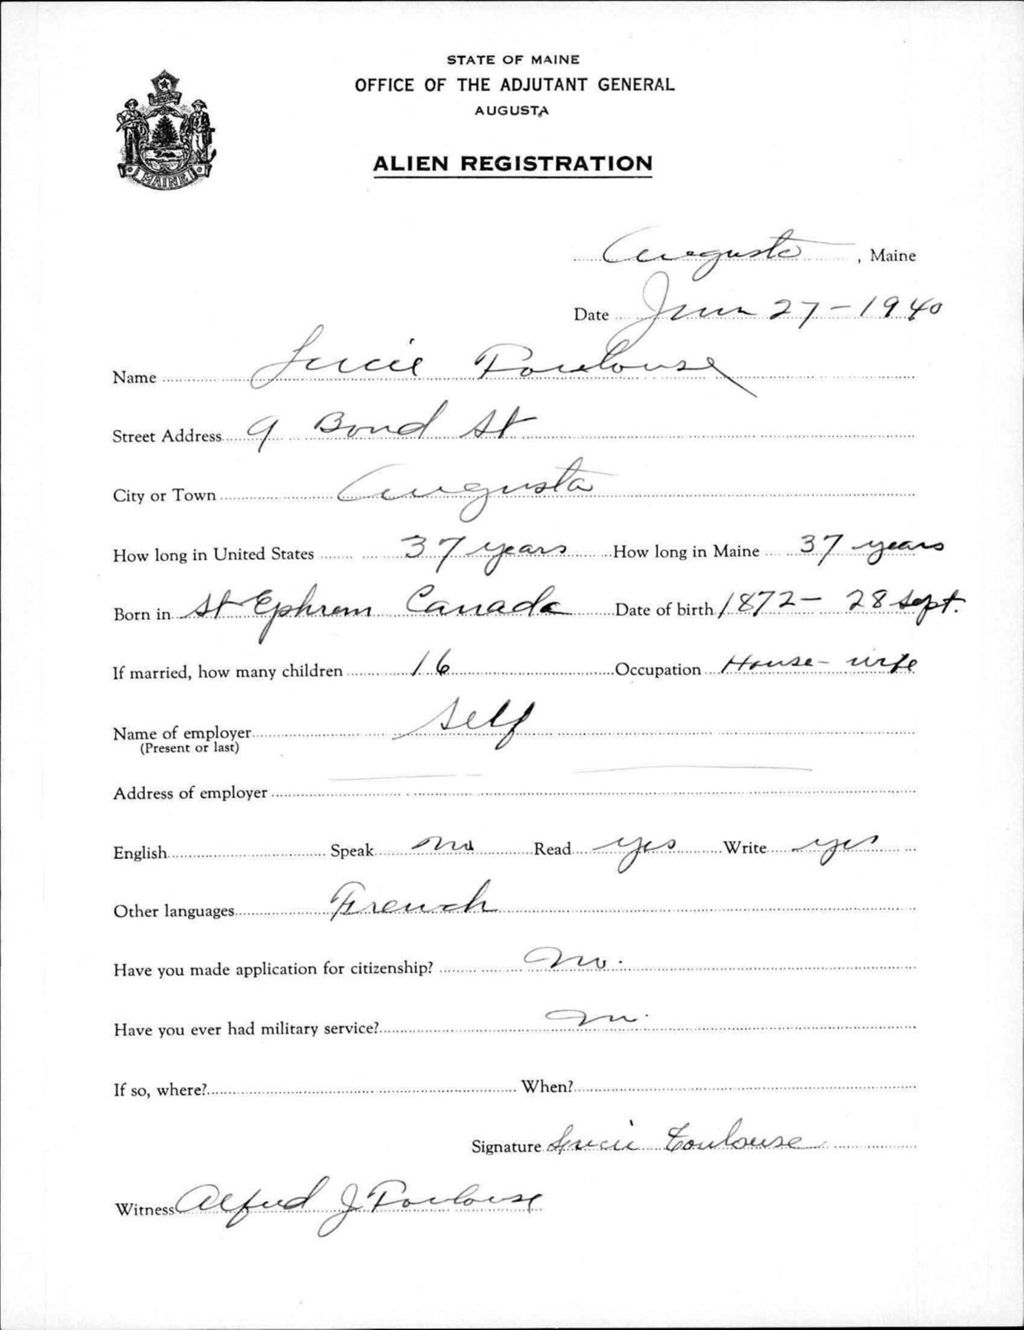 STATE OF MAINE
OFFICE OF THE ADJUTANT GENERAL
AUGUSTA
ALIEN REGISTRATION
MAINE
Augusta, Maine
Date June 27-1940
Name Lucie Toulouse
Street Address 9 Bond St
City or Town Augusta
How long in United States 37 years How long in Maine 37 years
Born in St Ephrem Canada Date of birth 1872- 28 Sept.
If married, how many children 16 Occupation House-wife
Name of employer Self
(Present or last)
Address of employer
English Speak no Read yes Write yes
Other languages French
Have you made application for citizenship? No.
Have you ever had military service? no.
If so, where? When?
Signature Lucie Toulouse
Witness Alfred J Toulouse